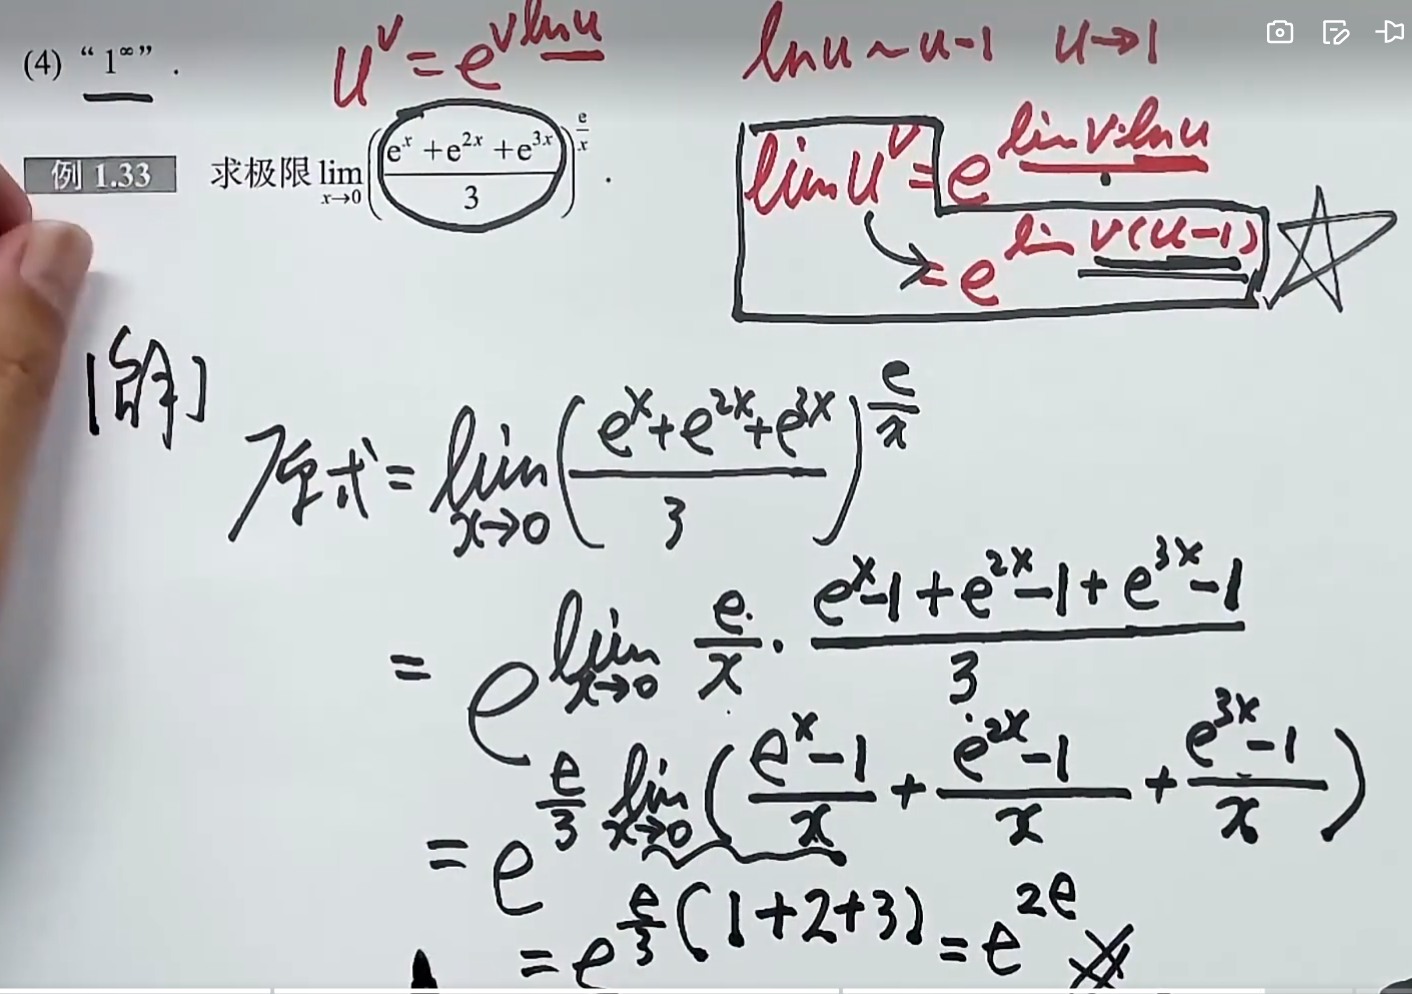 (4) “1^∞”.
u^v = e^{v ln u}
ln u ~ u-1 u→1
例 1.33 求极限 lim_{x→0} ((e^x + e^{2x} + e^{3x})/3)^{e/x} .
lim u^v = e^{lim v·ln u}
= e^{lim v(u-1)}
[解]
原式 = lim_{x→0} ((e^x + e^{2x} + e^{3x})/3)^{e/x}
= e^{lim_{x→0} e/x · (e^x-1 + e^{2x}-1 + e^{3x}-1)/3}
= e^{e/3 lim_{x→0} ((e^x-1)/x + (e^{2x}-1)/x + (e^{3x}-1)/x)}
= e^{e/3 (1+2+3)} = e^{2e}